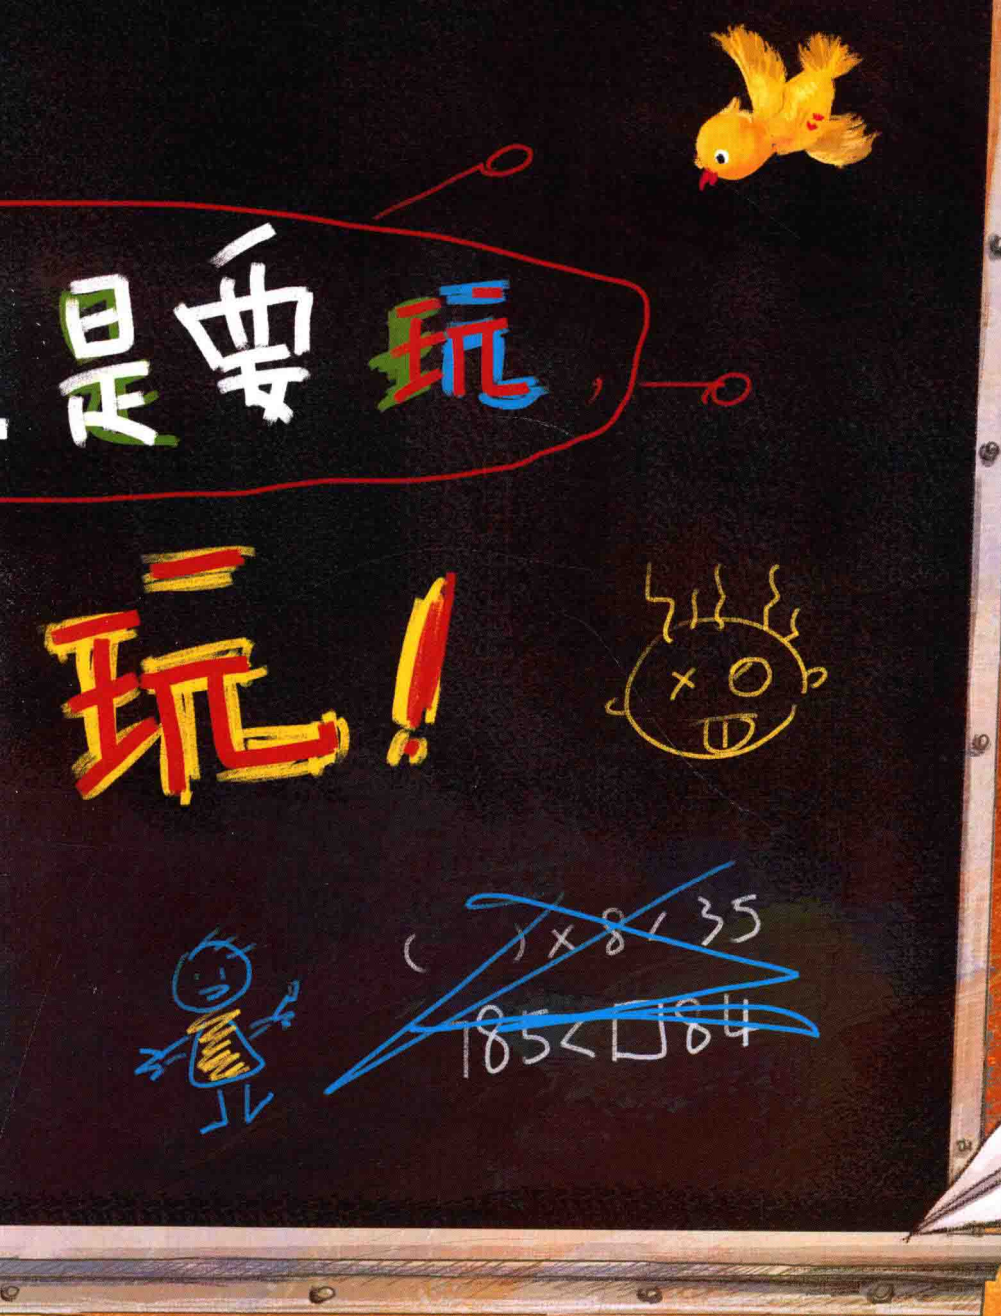 是要玩，
玩！
( )×8<35
785<□84